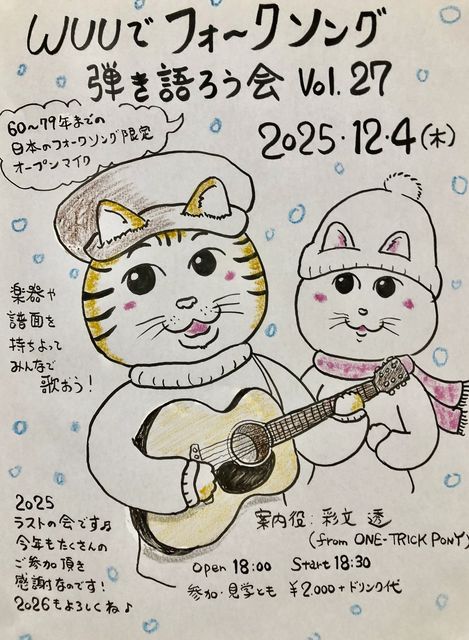 WUUでフォ〜クソング
弾き語ろう会 Vol.27
60〜79年までの
日本のフォークソング限定
オープンマイク
2025・12・4(木)
楽器や
譜面を
持ちよって
みんなで
歌おう!
2025
ラストの会です♫
今年もたくさんの
ご参加頂き
感謝なのです!
2026もよろしくね♪
案内役:彩文 透
(from ONE-TRICK PONY)
Open 18:00 Start 18:30
参加・見学とも ¥2.000+ドリンク代